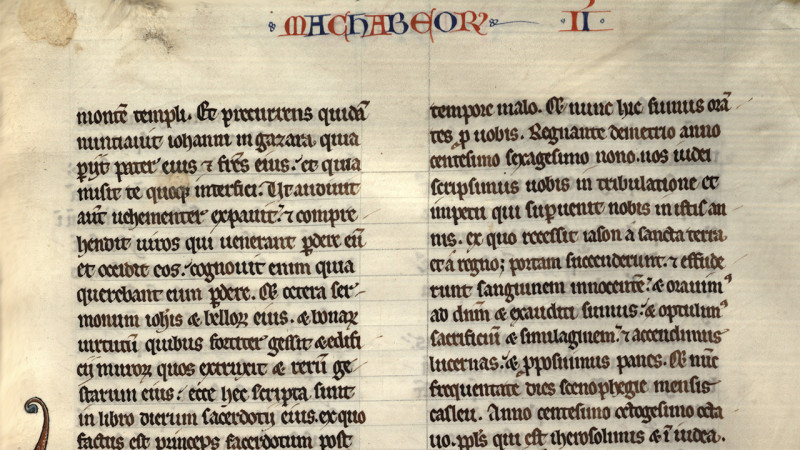 MACHABEOR II
montē templi. Et precurrens quidā
nuntiauit iohanni in gazara quia
ꝑijt pater eius ⁊ fr̄es eius. et quia
misit te quoqꝫ interfici. Ut audiuit
aūt uehementer expauit. ⁊ compre
hendit uiros qui uenerant ꝑdere eū
et occidit eos. cognouit enim quia
querebant eum ꝑdere. Et cetera ser
monum ioh̄is & belloꝝ eius. & bonaꝝ
uirtutū quibus fortiter gessit & edifi
cij muroꝝ quos extruxit & rerū ge
starum eius. ecce hec scripta sunt
in libro dierum sacerdotij eius. ex quo
factus est princeps sacerdotum post
tempore malo. Et nunc hic sumus orā
tes ꝓ uobis. Regnante demetrio anno
centesimo sexagesimo nono. nos iudei
scripsimus uobis in tribulatione et
impetu qui suꝑuenit nobis in istis an
nis. ex quo recessit iason a sancta terra
et a regno; portam succenderunt. ⁊ effude
runt sanguinem innocentē. & orauimꝰ
ad dn̄m & exauditi sumus. & optulimꝰ
sacrificiū & similaginem. ⁊ accendimus
lucernas. & ꝓposuimus panes. Et nūc
frequentate dies scenophegie mensis
casleu. Anno centesimo octogesimo octa
uo. ppl̄s qui est iherosolimis & ī iudea.